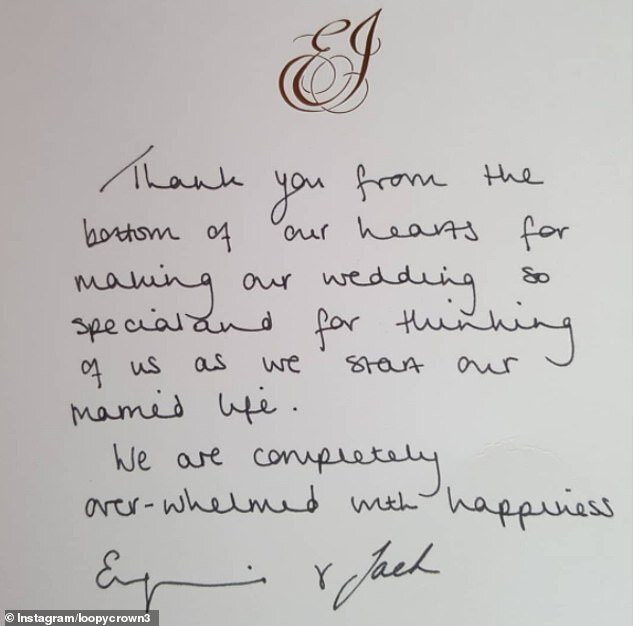 EJ
Thank you from the
bottom of our hearts for
making our wedding so
special and for thinking
of us as we start our
married life.
We are completely
over-whelmed with happiness
Eugenie & Jack
© Instagram/loopycrown3